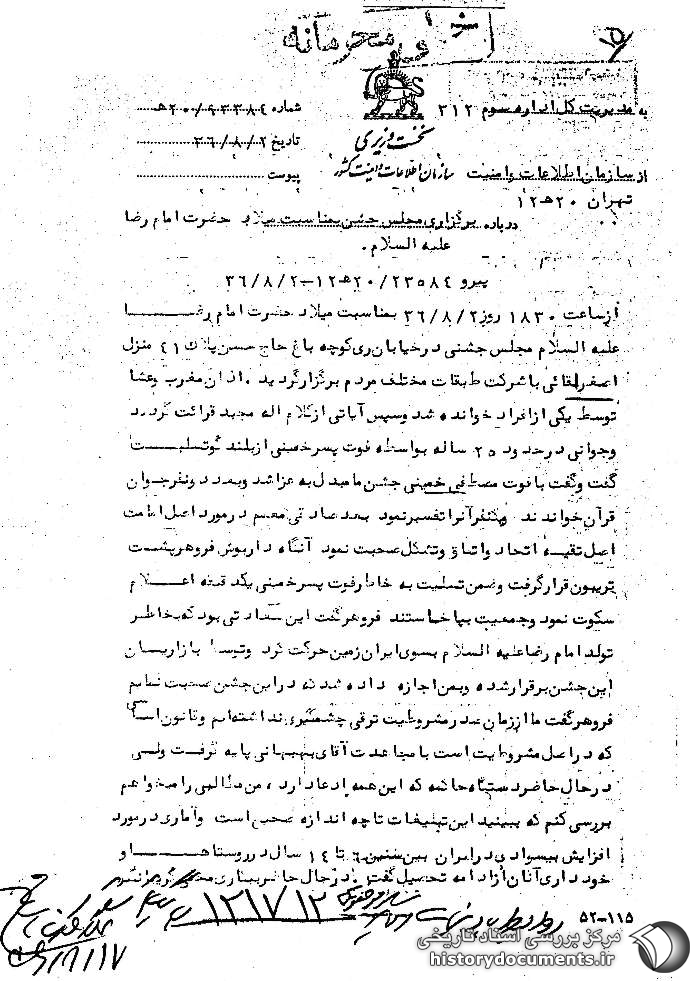 محرمانه
به مدیریت کل اداره سوم ۳۱۲
از سازمان اطلاعات و امنیت تهران ۲۰هـ۱۲
نخست وزیری
سازمان اطلاعات و امنیت کشور
شماره
تاریخ
پیوست
درباره برگزاری مجلس جشن بمناسبت میلاد حضرت امام رضا
علیه السلام.
پیرو ۲۳۵۸۴/۲۰هـ۱۲-۳۶/۸/۲
از ساعت ۱۸۳۰ روز ۳۶/۸/۲ بمناسبت میلاد حضرت امام رضا
علیه السلام مجلس جشنی در خیابان ری کوچه باغ حاج حسن پلاک ۴۱ منزل
اصغر لقائی با شرکت طبقات مختلف مردم برگزار گردید. اذان مغرب و عشا
توسط یکی از افراد خوانده شد و سپس آیاتی از کلام اله مجید قرائت گردید
و جوانی در حدود ۲۵ ساله بواسطه فوت پسر خمینی از بلند گو تسلیت
گفت و گفت با فوت مصطفی خمینی جشن ما مبدل به عزا شد و بعد دو نفر جوان
قرآن خواندند و یکنفر آنرا تفسیر نمود بعد صادقی معمم در مورد اصل امامت
اصل تقیه اتحاد و اتفاق و تشکل صحبت نمود آنگاه داریوش فروهر پشت
تریبون قرار گرفت و ضمن تسلیت به خاطر فوت پسر خمینی یکدقیقه اعلام
سکوت نمود و جمعیت بپا خاستند فروهر گفت این سعادتی بود که بخاطر
تولد امام رضا علیه السلام بسوی ایران زمین حرکت کرد و توسط بازاریان
این جشن برقرار شده و بمن اجازه داده شد که در این جشن صحبت نمایم
فروهر گفت ما از زمان صدر مشروطیت ترقی چشمگیری نداشته‌ایم و قانون اساسی
که در اصل مشروطیت است با مساعدت آقای بهبهانی پایه گرفت ولی
در حال حاضر دستگاه حاکمه که این همه ادعا دارد، من مطالبی را میخواهم
بررسی کنم که ببینید این تبلیغات تا چه اندازه صحیح است و آماری در مورد
افزایش بیسوادی در ایران بین سنین ۶ تا ۱۴ سال در روستاها و
خودداری آنان از ادامه تحصیل گفت در حال حاضر
۱۲۱۷۱۲
۵۲-۱۱۵
مرکز بررسی اسناد تاریخی
historydocuments.ir